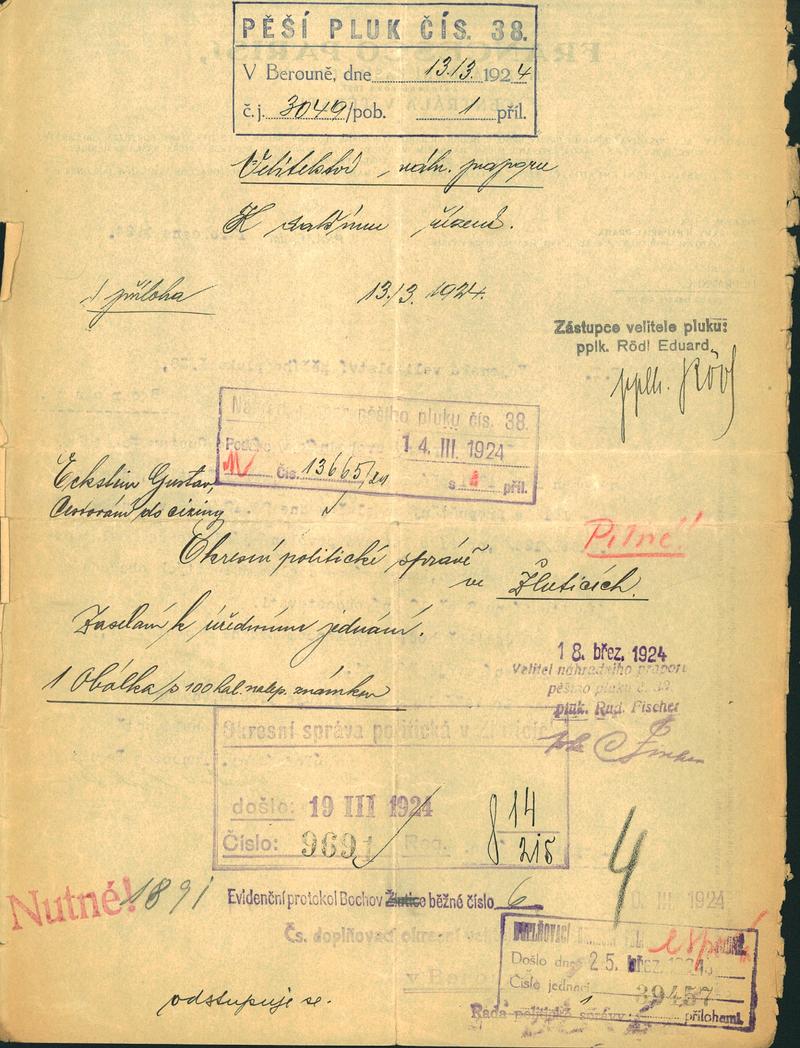 PĚŠÍ PLUK ČÍS. 38.
V Berouně, dne 13.13. 1924
č.j. 3049/pob. 1 příl.
Velitelství náhr. praporu
K dalšímu řízení.
1 příloha
13./3. 1924.
Zástupce velitele pluku:
pplk. Rödl Eduard
pplk. Rödl
pěšího pluku čís. 38.
14. III. 1924
Čís. 13665/24
příl.
Eckstein Gustav,
Cestování do ciziny
Pilné!
Okresní politické správě
ve Žluticích.
Zaslání k úřednímu jednání.
18. břez. 1924
Velitel náhradního praporu
pěšího pluku č. 38
pluk. Rud. Fischer
1 Obálka s 100 hal. nalep. známkou
Okresní správa politická v Žluticích
došlo: 19 III 1924
Číslo: 9691 Reg.
8 14
215
4
Nutné! 1891
Evidenční protokol Bochov Žlutice běžné číslo 6
III 1924
Čs. doplňovací okresní
DOPLŇOVACÍ
Došlo dne 25. břez. 1924
Číslo jednací 39457
Rada politické správy: 1 přílohami.
odstupuje se.